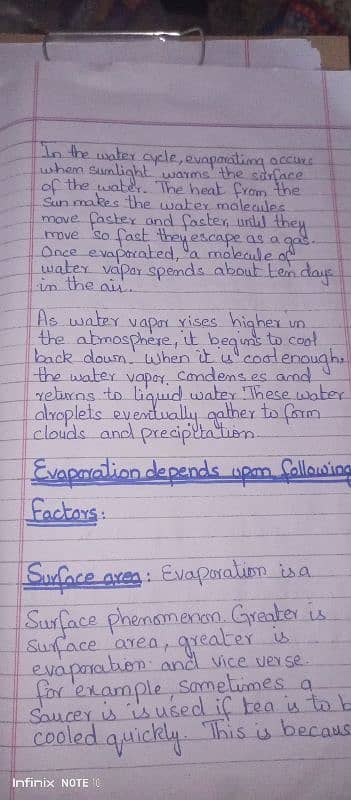 In the water cycle, evaporating occurs
when sunlight warms the surface
of the water. The heat from the
Sun makes the water molecules
move faster and faster, until they
move so fast they escape as a gas.
Once evaporated, a molecule of
water vapor spends about ten days
in the air.
As water vapor rises higher in
the atmosphere, it begins to cool
back down. When it is cool enough,
the water vapor condenses and
returns to liquid water. These water
droplets eventually gather to form
clouds and precipitation.
Evaporation depends upon following
factors:
Surface area: Evaporation is a
Surface phenomenon. Greater is
surface area, greater is
evaporation and vice verse.
for example, sometimes a
Saucer is is used if tea is to b
cooled quickly. This is becaus
Infinix NOTE